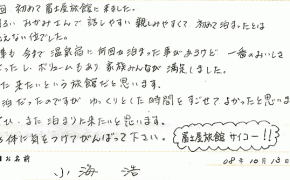 回 初めて 冨士屋旅館に来ました。
おかみさんで 話しやすい 親しみやすくて 初めて泊まったとは
えない位でした。
事も 今まで 温泉宿に何回か泊まった事があるけど 一番のおいしさ
だったし ボリュームもあり 家族みんなが 満足しました。
た来たいという旅館だと思います。
泊だったのですが ゆっくりとした時間をすごせてよかったと思いま
ひ、また 泊まりに来たいと思います。
体に気をつけてがんばって下さい。
冨士屋旅館 サイコー!!
お名前
小海 浩
08年10月13日